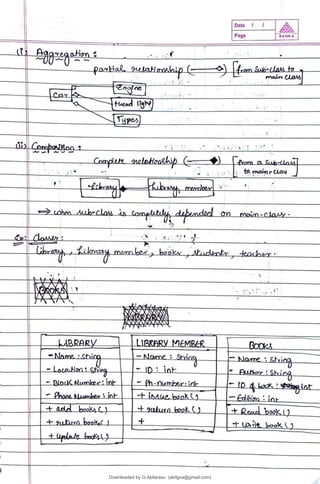 Date / /
Page
(i) Aggregation :
partial relationship ( ) [from sub-class to
main class]
Engine
Car
Head light
Types
(ii) Composition :
Complete relationship ( ) [from a sub-class
to main class]
Library Library member
⇒ when sub-class is completely depended on main-class.
Ex: Classes :
Library, Library member, books, students, teacher.
LIBRARY LIBRARY MEMBER BOOKS
- Name : String - Name : String - Name : String
- Location : String - ID : int - Author : String
- Block Number : int - Ph-number : int - ID of book : int
- Phone Number : int + issue book () - Edition : int
+ add books () + return book () + Read book ()
+ return books() + + write book ()
+ update books ()
Downloaded by G.Akilarasu (akilgva@gmail.com)